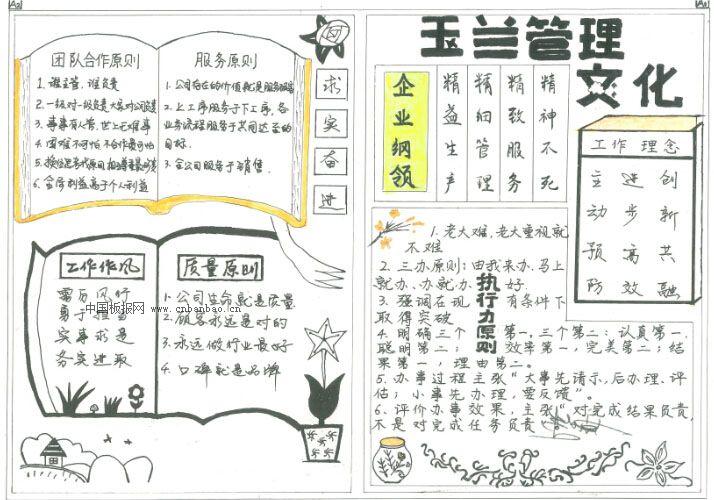 A3
团队合作原则
1. 谁主管，谁负责
2. 一级对一级负责
3. 事事有人管，世上无难事
4. 困难不可怕 不合作最可怕
6. 全局利益高于个人利益
服务原则
1. 公司存在的价值就是服务
2. 上工序服务于下工序，各
业务流程服务于共同达至的
目标.
3. 全公司服务于销售.
求
实
奋
进
工作作风
雷厉风行
勇于担当
实事求是
务实进取
质量原则
1. 公司生命就是质量
2. 顾客永远是对的
3. 永远做行业最好
4. 口碑就是品牌
中国板报网
www.cnbanbao.cn
玉兰管理
文化
企业纲领
精益生产
精细管理
精致服务
精神不死
工作 理念
主 进 创
动 步 新
预 高 共
防 效 融
执行力原则
1. 老大难，老大重视就
不难
2. 三办原则：由我来办、马上
就办、办就办 好
3. 强调在现 有条件下
取得突破
4. 明确三个 第一，三个第二：认真第一，
聪明第二； 效率第一，完美第二；结
果第一，理由第二。
5. 办事过程主张“大事先请示，后办理、评
估；小事先办理，要反馈”。
6. 评价办事效果，主张“对完成结果负责，
不是对完成任务负责